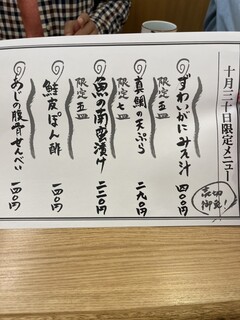 十月三十日限定メニュー
品切御免!
ずわいがにみそ汁 四〇〇円
限定五皿
真鯛の天ぷら 二九〇円
限定七皿
魚の南蛮漬け 二二〇円
限定五皿
鮭皮ぽん酢 一四〇円
あじの腹骨せんべい 一四〇円